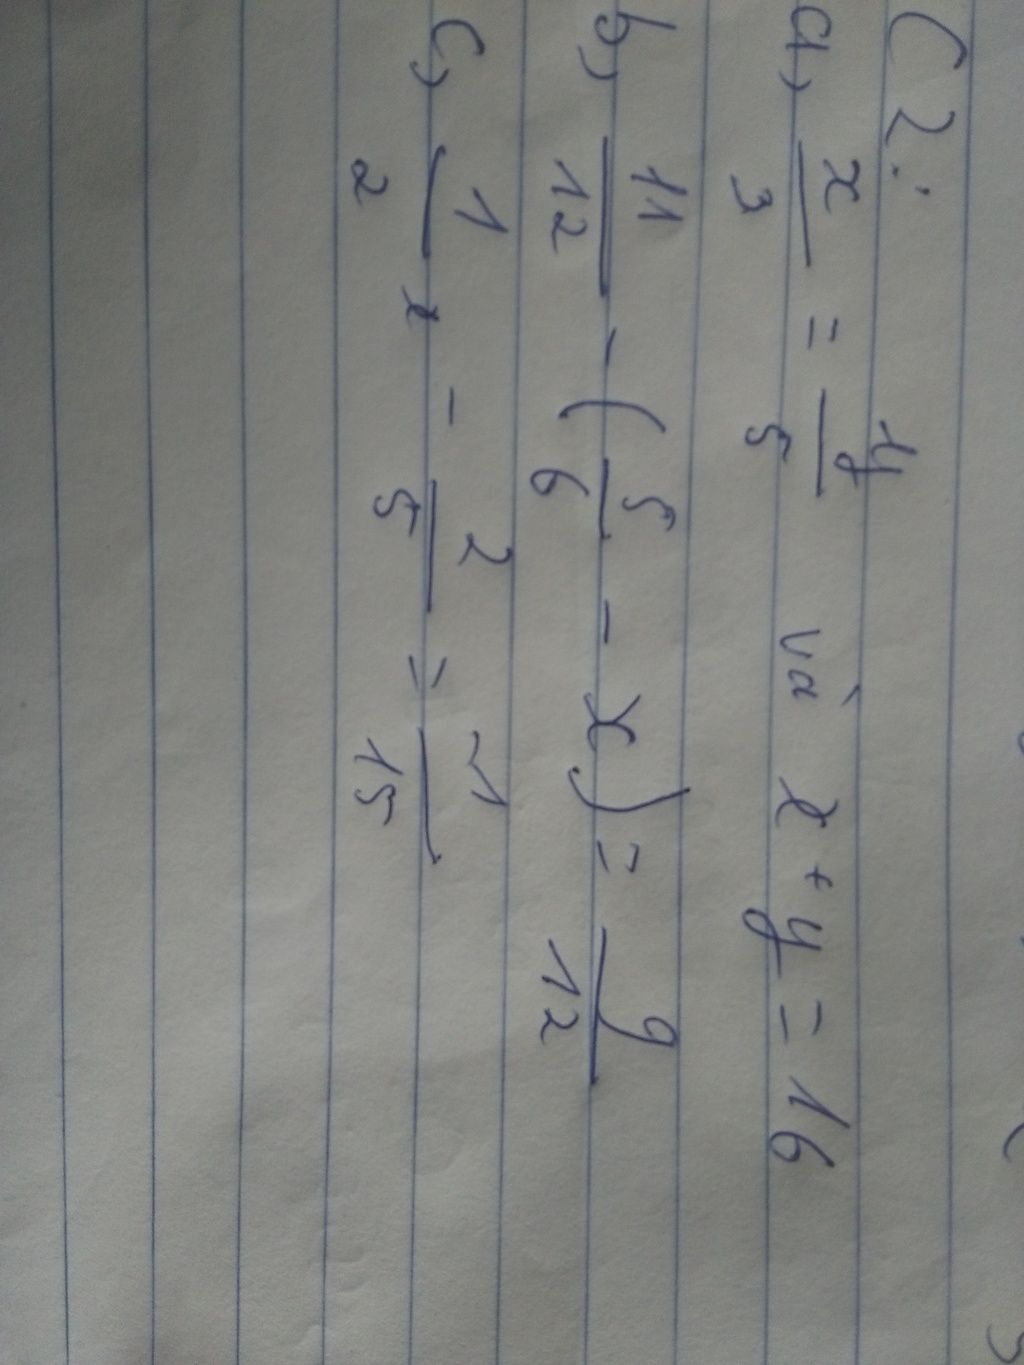 C2:
a, x/3 = y/5 và x + y = 16
b, 11/12 - (5/6 - x) = 9/12
c, 1/2 x - 2/5 = -1/15